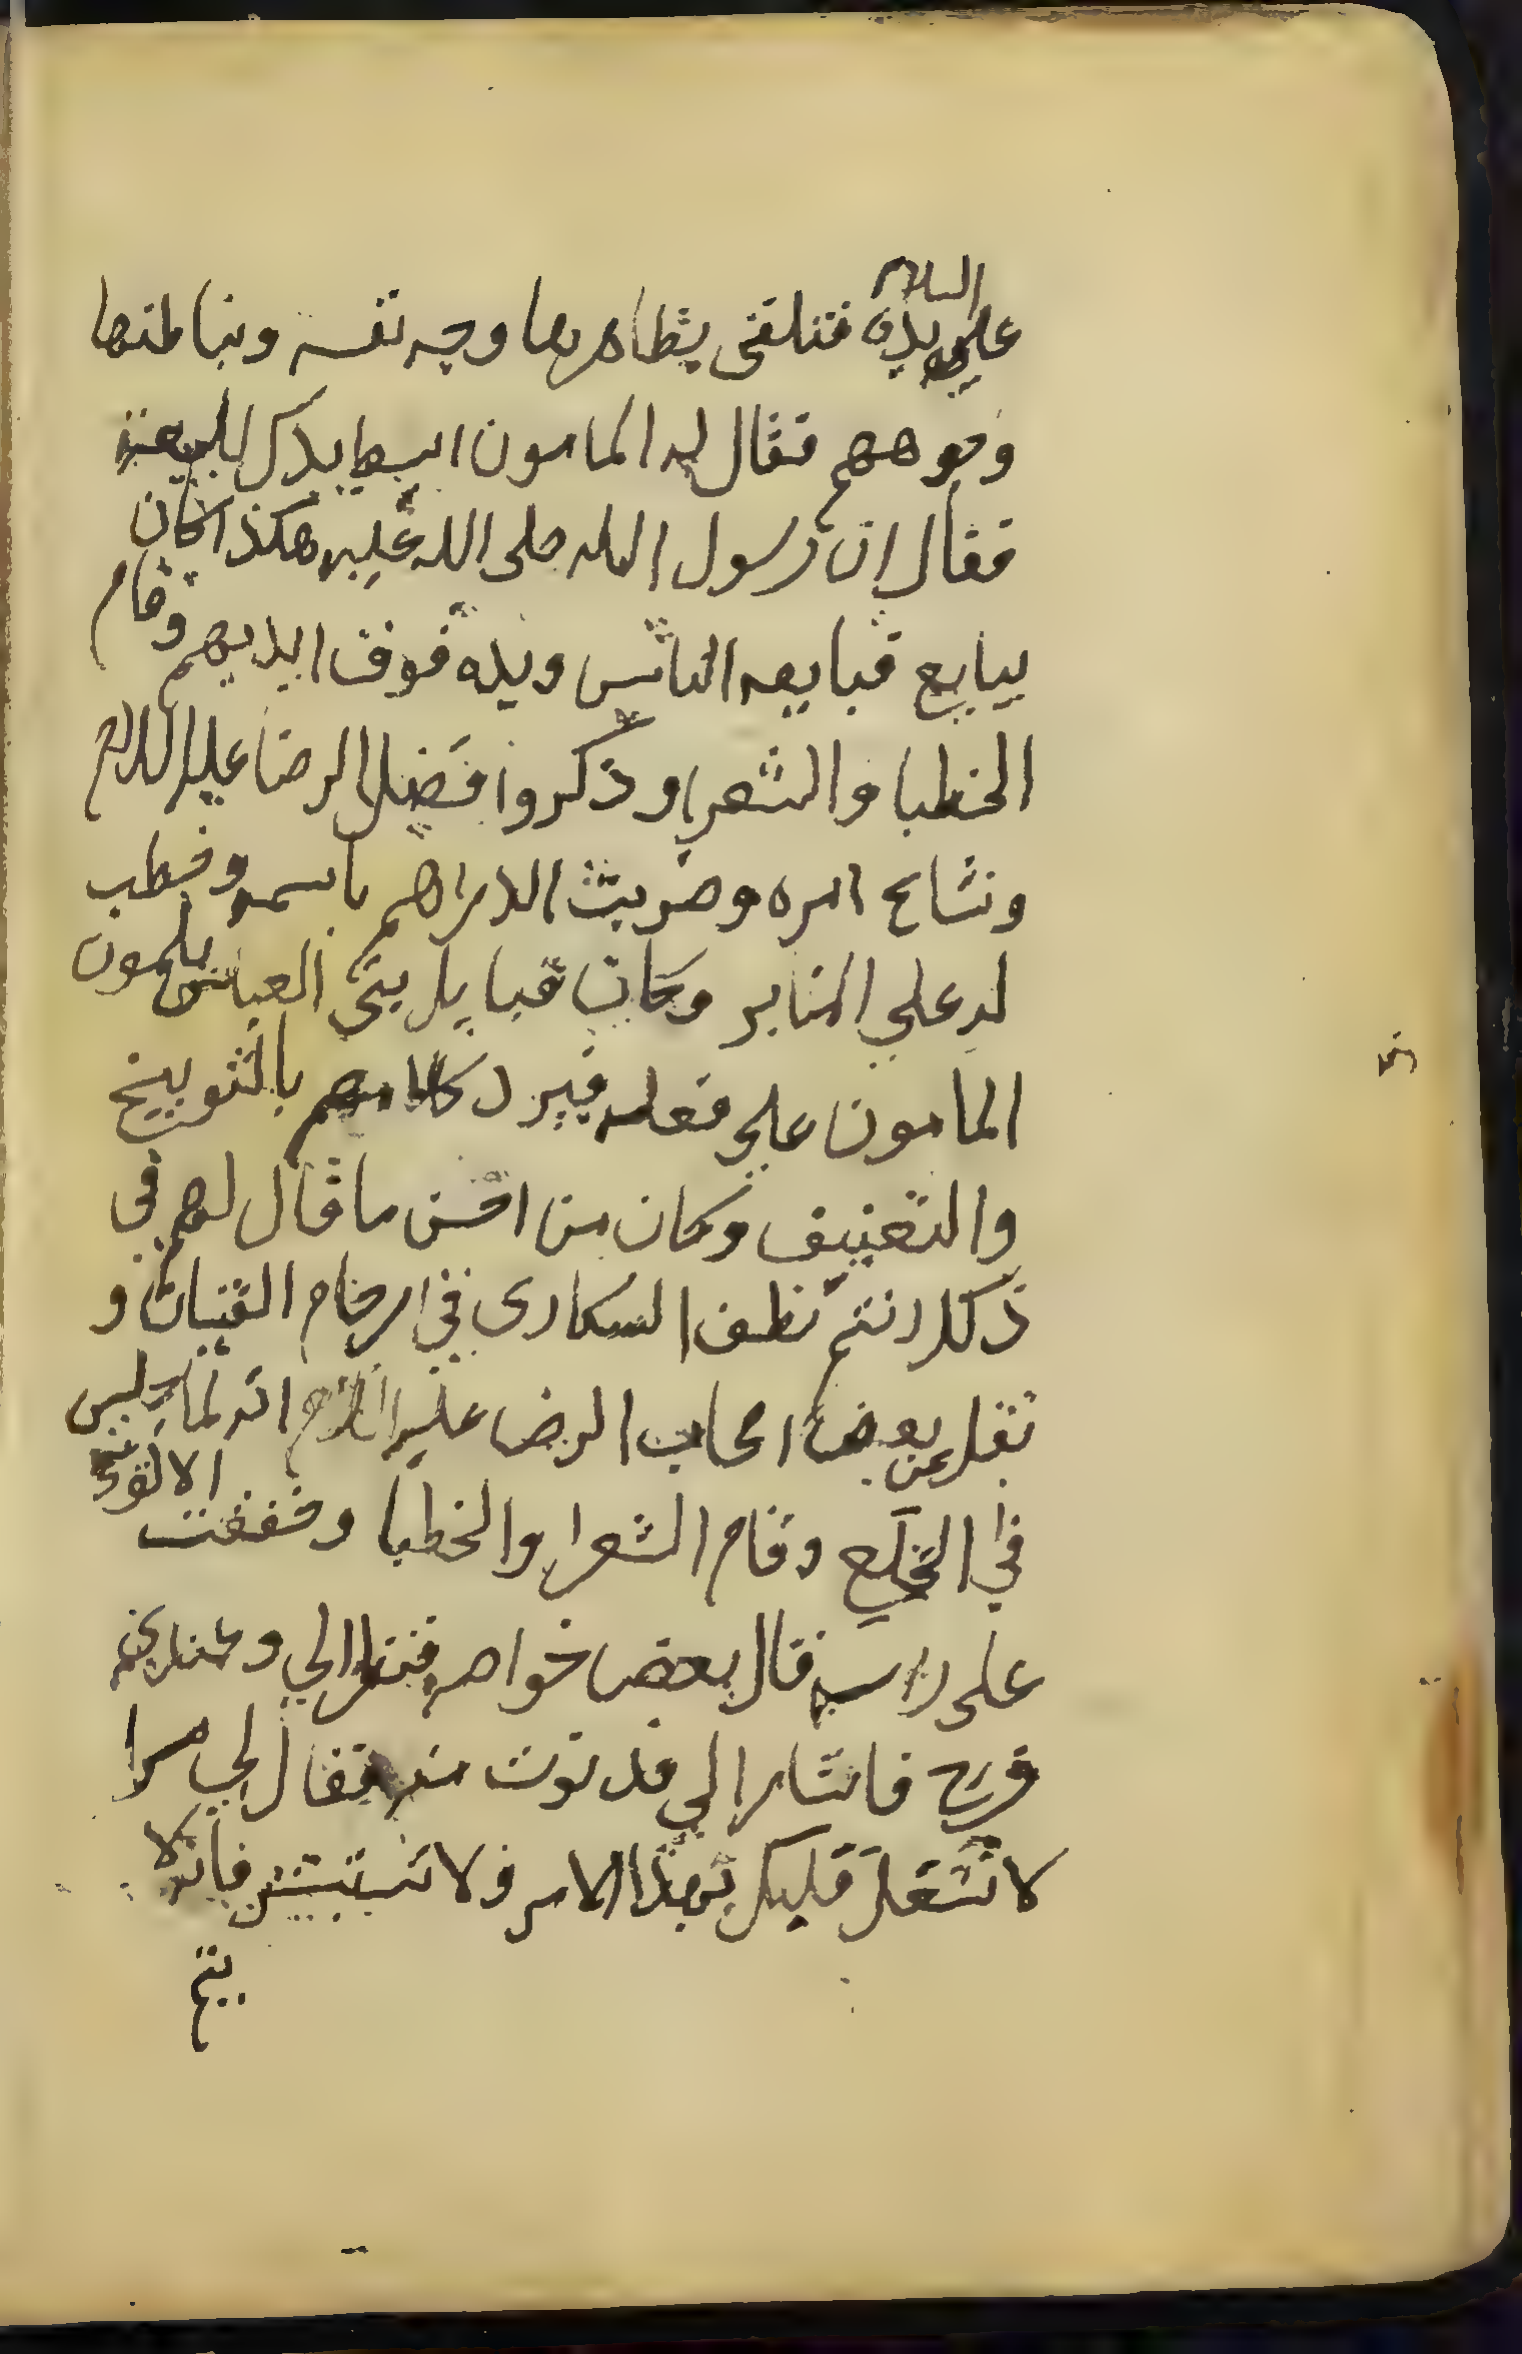 عليه السلام يده فتلقى بظاهرها وجه نفسه وبباطنها
وجوههم فقال له المامون ابسط يدك للبيعة
فقال ان رسول الله صلى الله عليه هكذا كان
يبايع فبايعه الناس ويده فوق ايديهم وقام
الخطبا والشعرا وذكروا فضل الرضا عليه السلام
وشاع امره وضربت الدراهم باسمه وخطب
له علي المنابر وكان قبايل بني العباس يلمون
المامون علي فعله فيرد كلامهم بالتوبيخ
والتعنيف وكان من احسن ما قال لهم في
ذلك انتم نطف السكارى في ارحام القينات و
نقل عن بعض اصحاب الرضا عليه السلام انه لما لبس
في الخلع وقام الشعرا والخطبا وخفقت الالويه
على راسه قال بعض خواصه فنظر الي وعندي
فرح فاشار الي فدنوت منه فقال لي سرا
لا تشغل قلبك بهذا الامر ولا تستبشر فانه لا
يتم